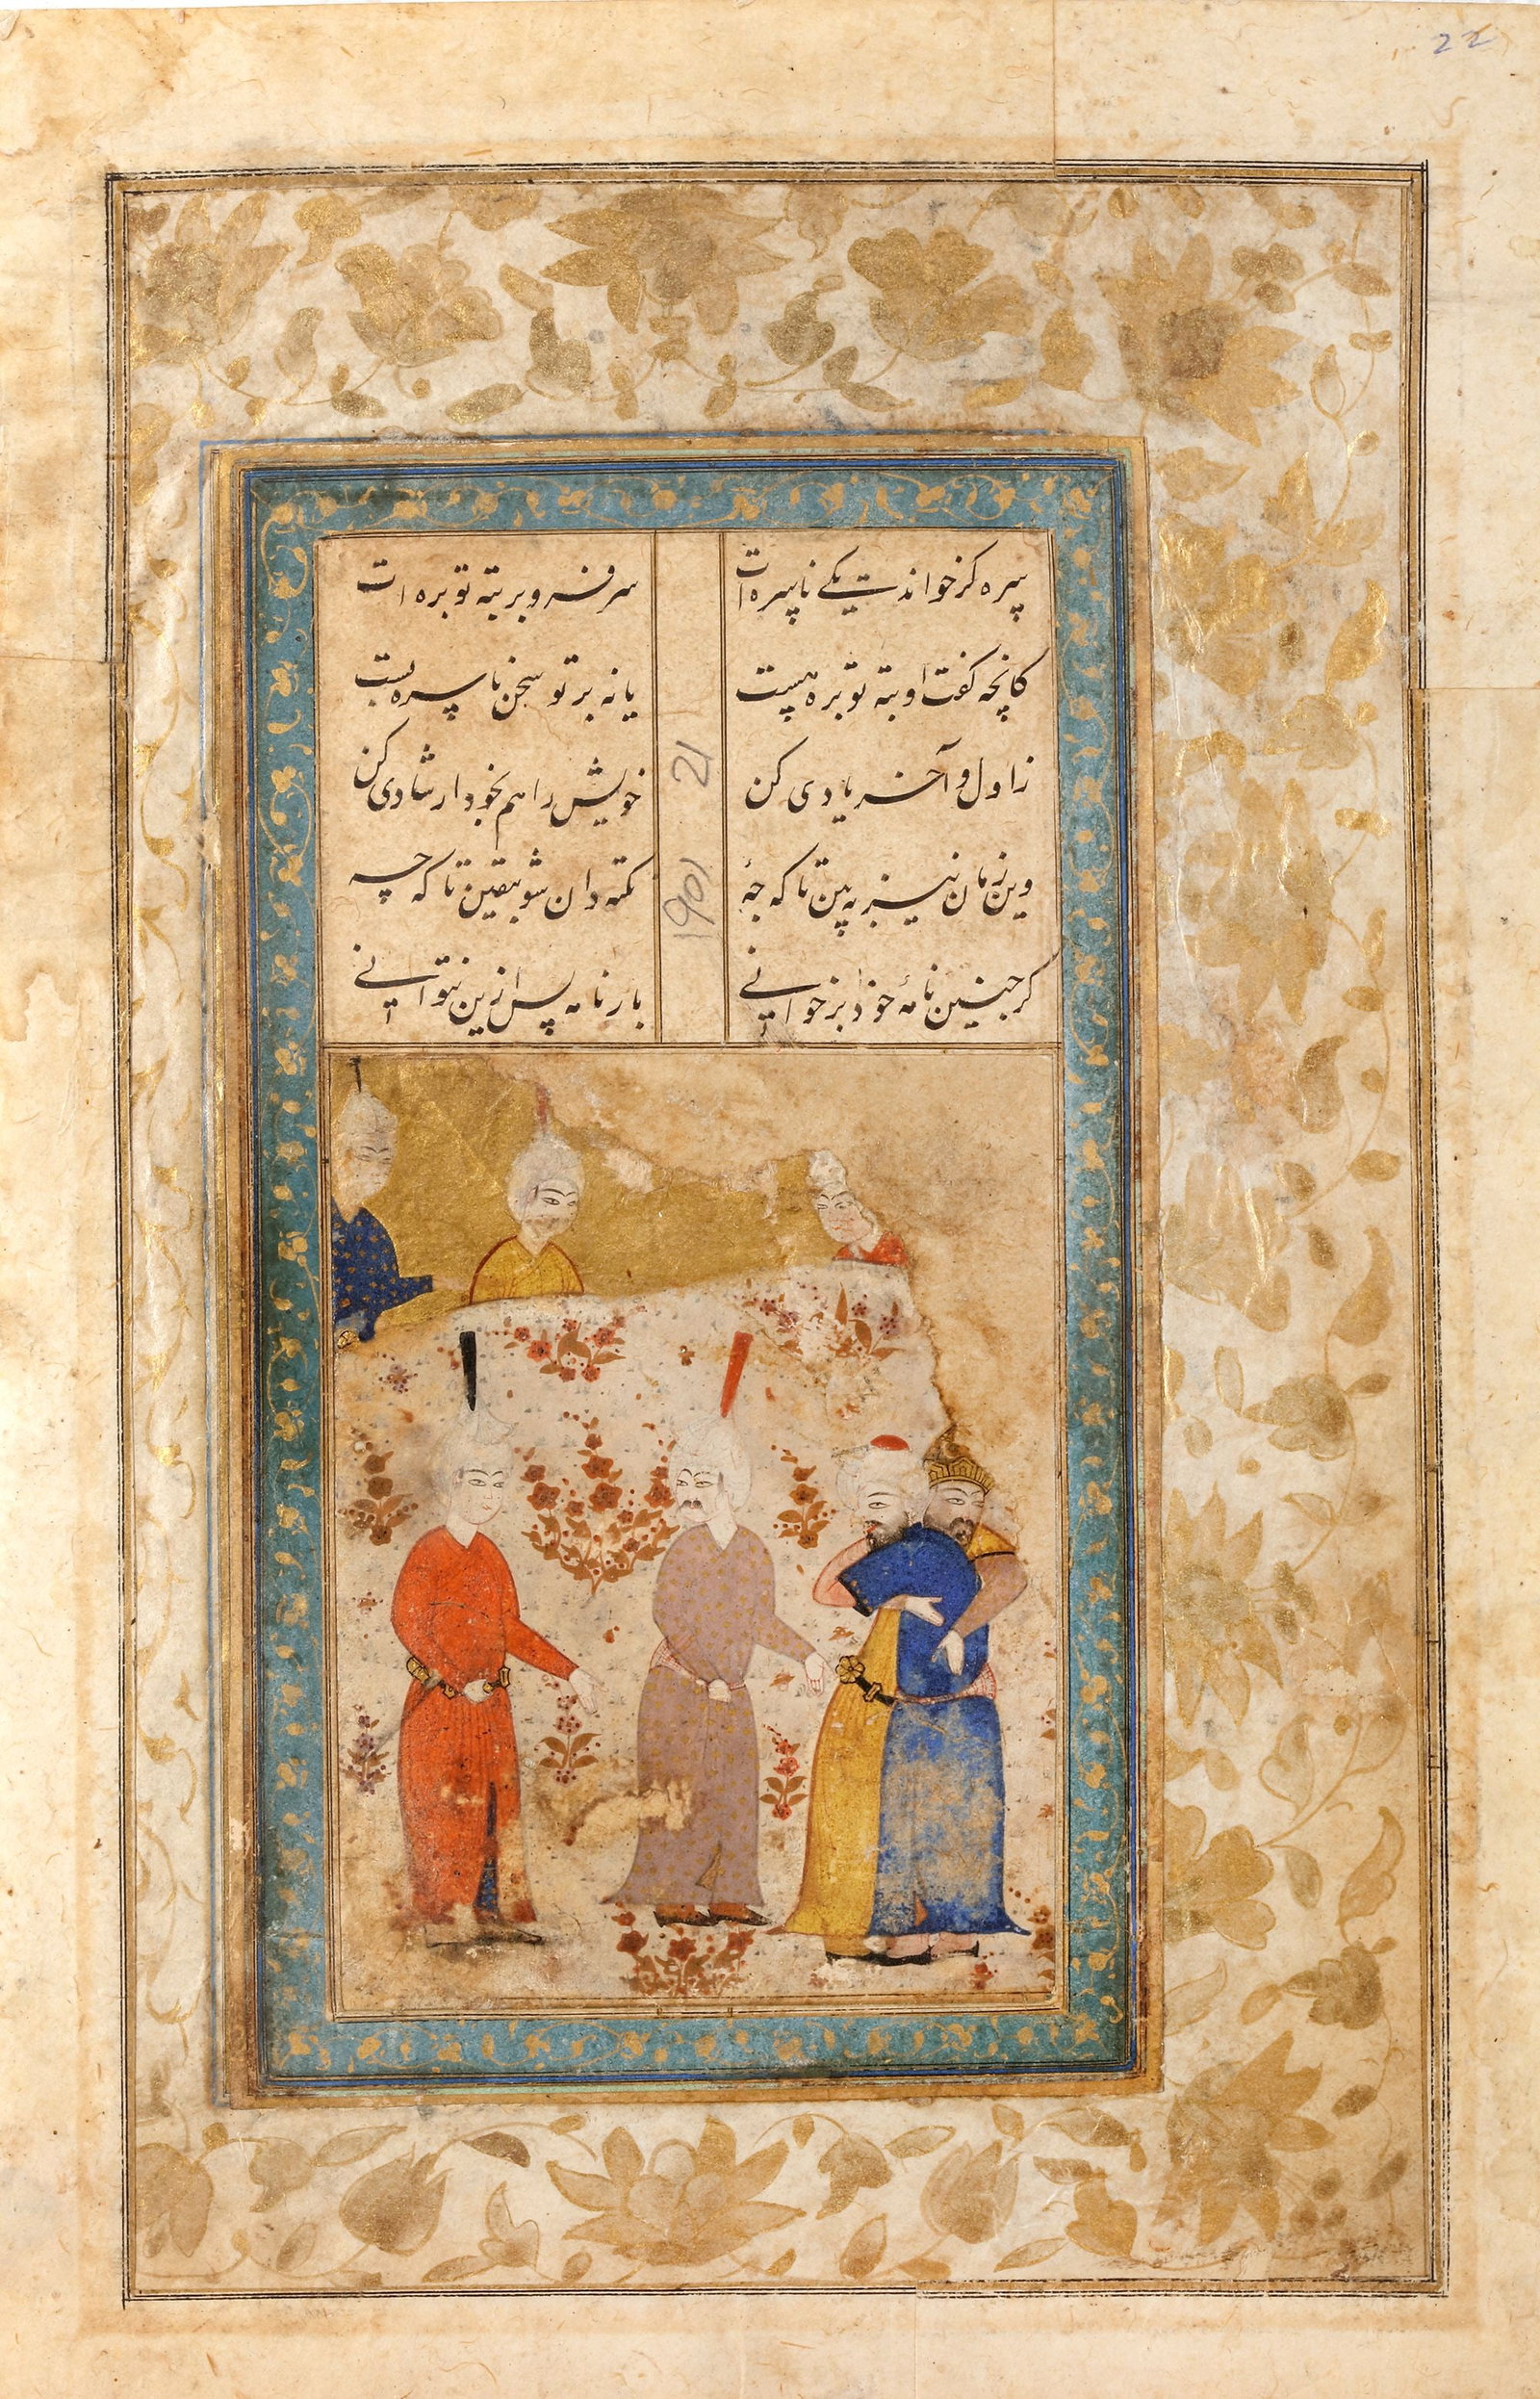 22
سره کر خواندت یکی ناسره ات سر فرو بر بته توبره ات
کانچه گفت او بته توبره هست یا نه بر تو سخن ناسره بست
زاول و آخر یادی کن خویش را هم بخود ارشادی کن
وین زمان نیز به بین تا که چهٔ نکته دان شو بیقین تا که چه
کر چنین نامهٔ خود برخوانی بار نامه پس ازین نتوانی
21
1901